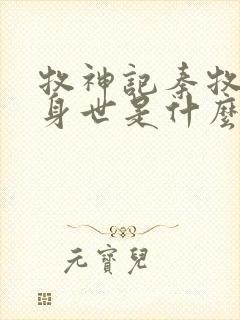 牧神記秦牧
身世是什麼
元寶兒